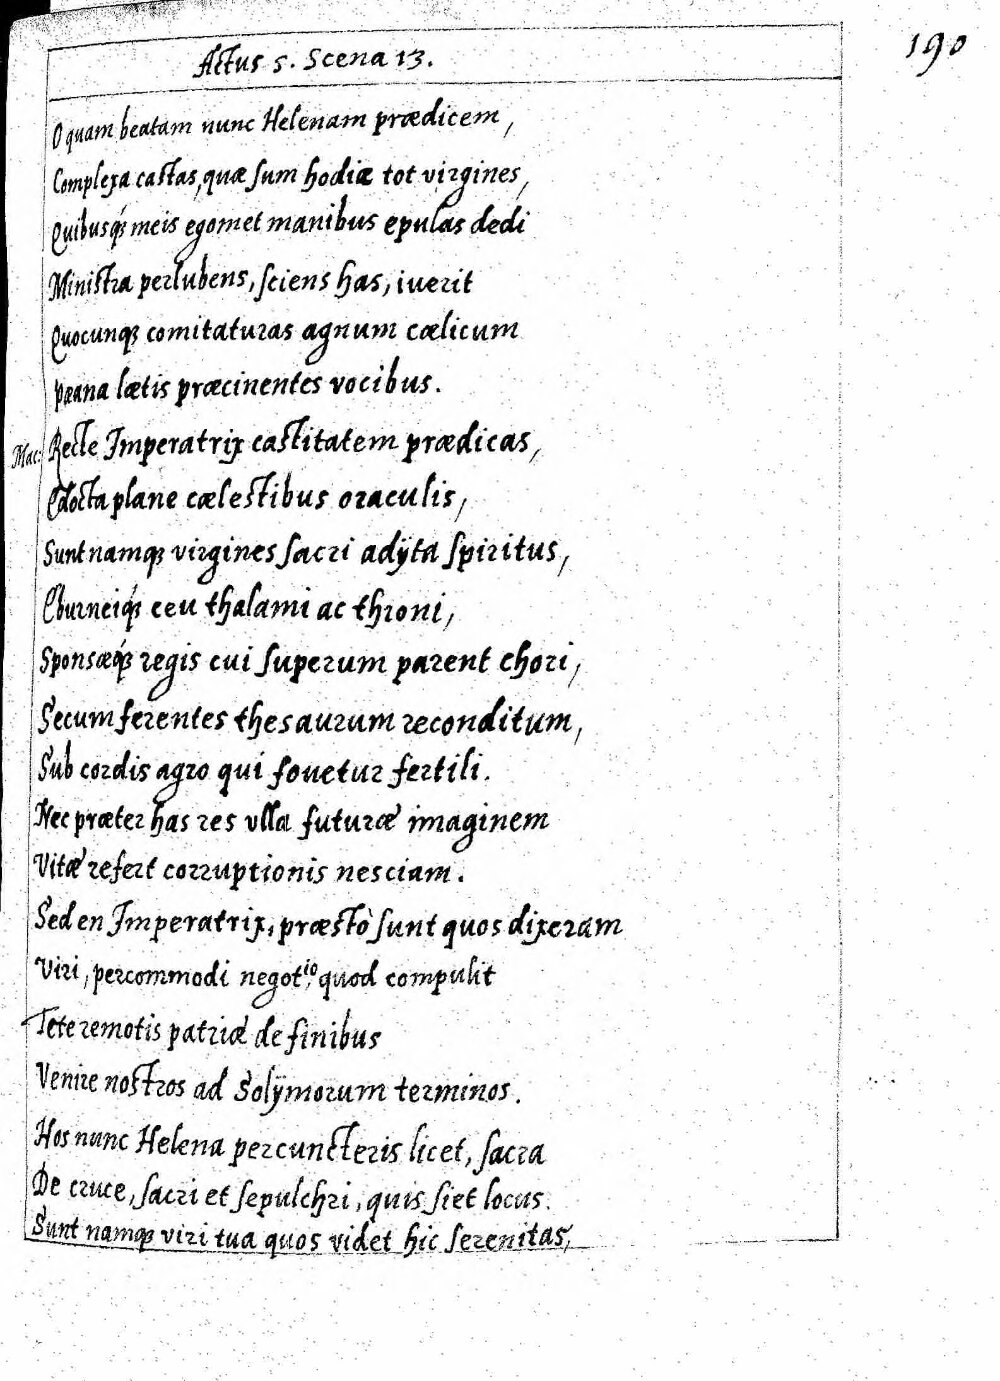 190
Actus 5. Scena 13.
O quam beatam nunc Helenam prædicem,
Complexa castas, quæ sum hodiæ tot virgines,
Quibusq́; meis egomet manibus epulas dedi
Ministra perlubens, sciens has, iverit
Quocunq; comitaturas agnum cælicum
Pæana lætis præcinentes vocibus.
Mac: Recte Imperatrix castitatem prædicas,
Edocta plane cælestibus oraculis,
Sunt namq; virgines sacri adÿta spiritus,
Eburneiq́; ceu thalami ac throni,
Sponsæq́; regis cui superum parent chori,
Secum ferentes thesaurum reconditum,
Sub cordis agro qui fouetur fertili.
Nec præter has res vlla futuræ imaginem
Vitæ refert corruptionis nesciam.
Sed en Imperatrix, præstò sunt quos dixeram
Viri, percommodi negot.io, quod compulit
Te te remotis patriæ de finibus
Venire nostros ad Solÿmorum terminos.
Hos nunc Helena percuncteris licet, sacra
De cruce, sacri et sepulchri, quis siet locus.
Sunt namq; viri tua quos videt hic serenitas,